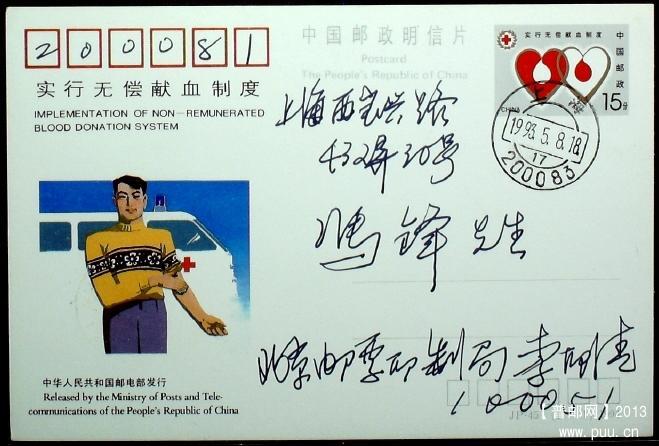 200081
实行无偿献血制度
IMPLEMENTATION OF NON-REMUNERATED
BLOOD DONATION SYSTEM
中国邮政明信片
Postcard
The People's Republic of China
实行无偿献血制度
中国邮政
CHINA
15分
上海
1993.5.8.18
17
200083
上海西宝兴路
30号
锋先生
北京邮票印制局李
100051
中华人民共和国邮电部发行
Released by the Ministry of Posts and Tele-
communications of the People's Republic of China
【普邮网】2013
www.puu.cn